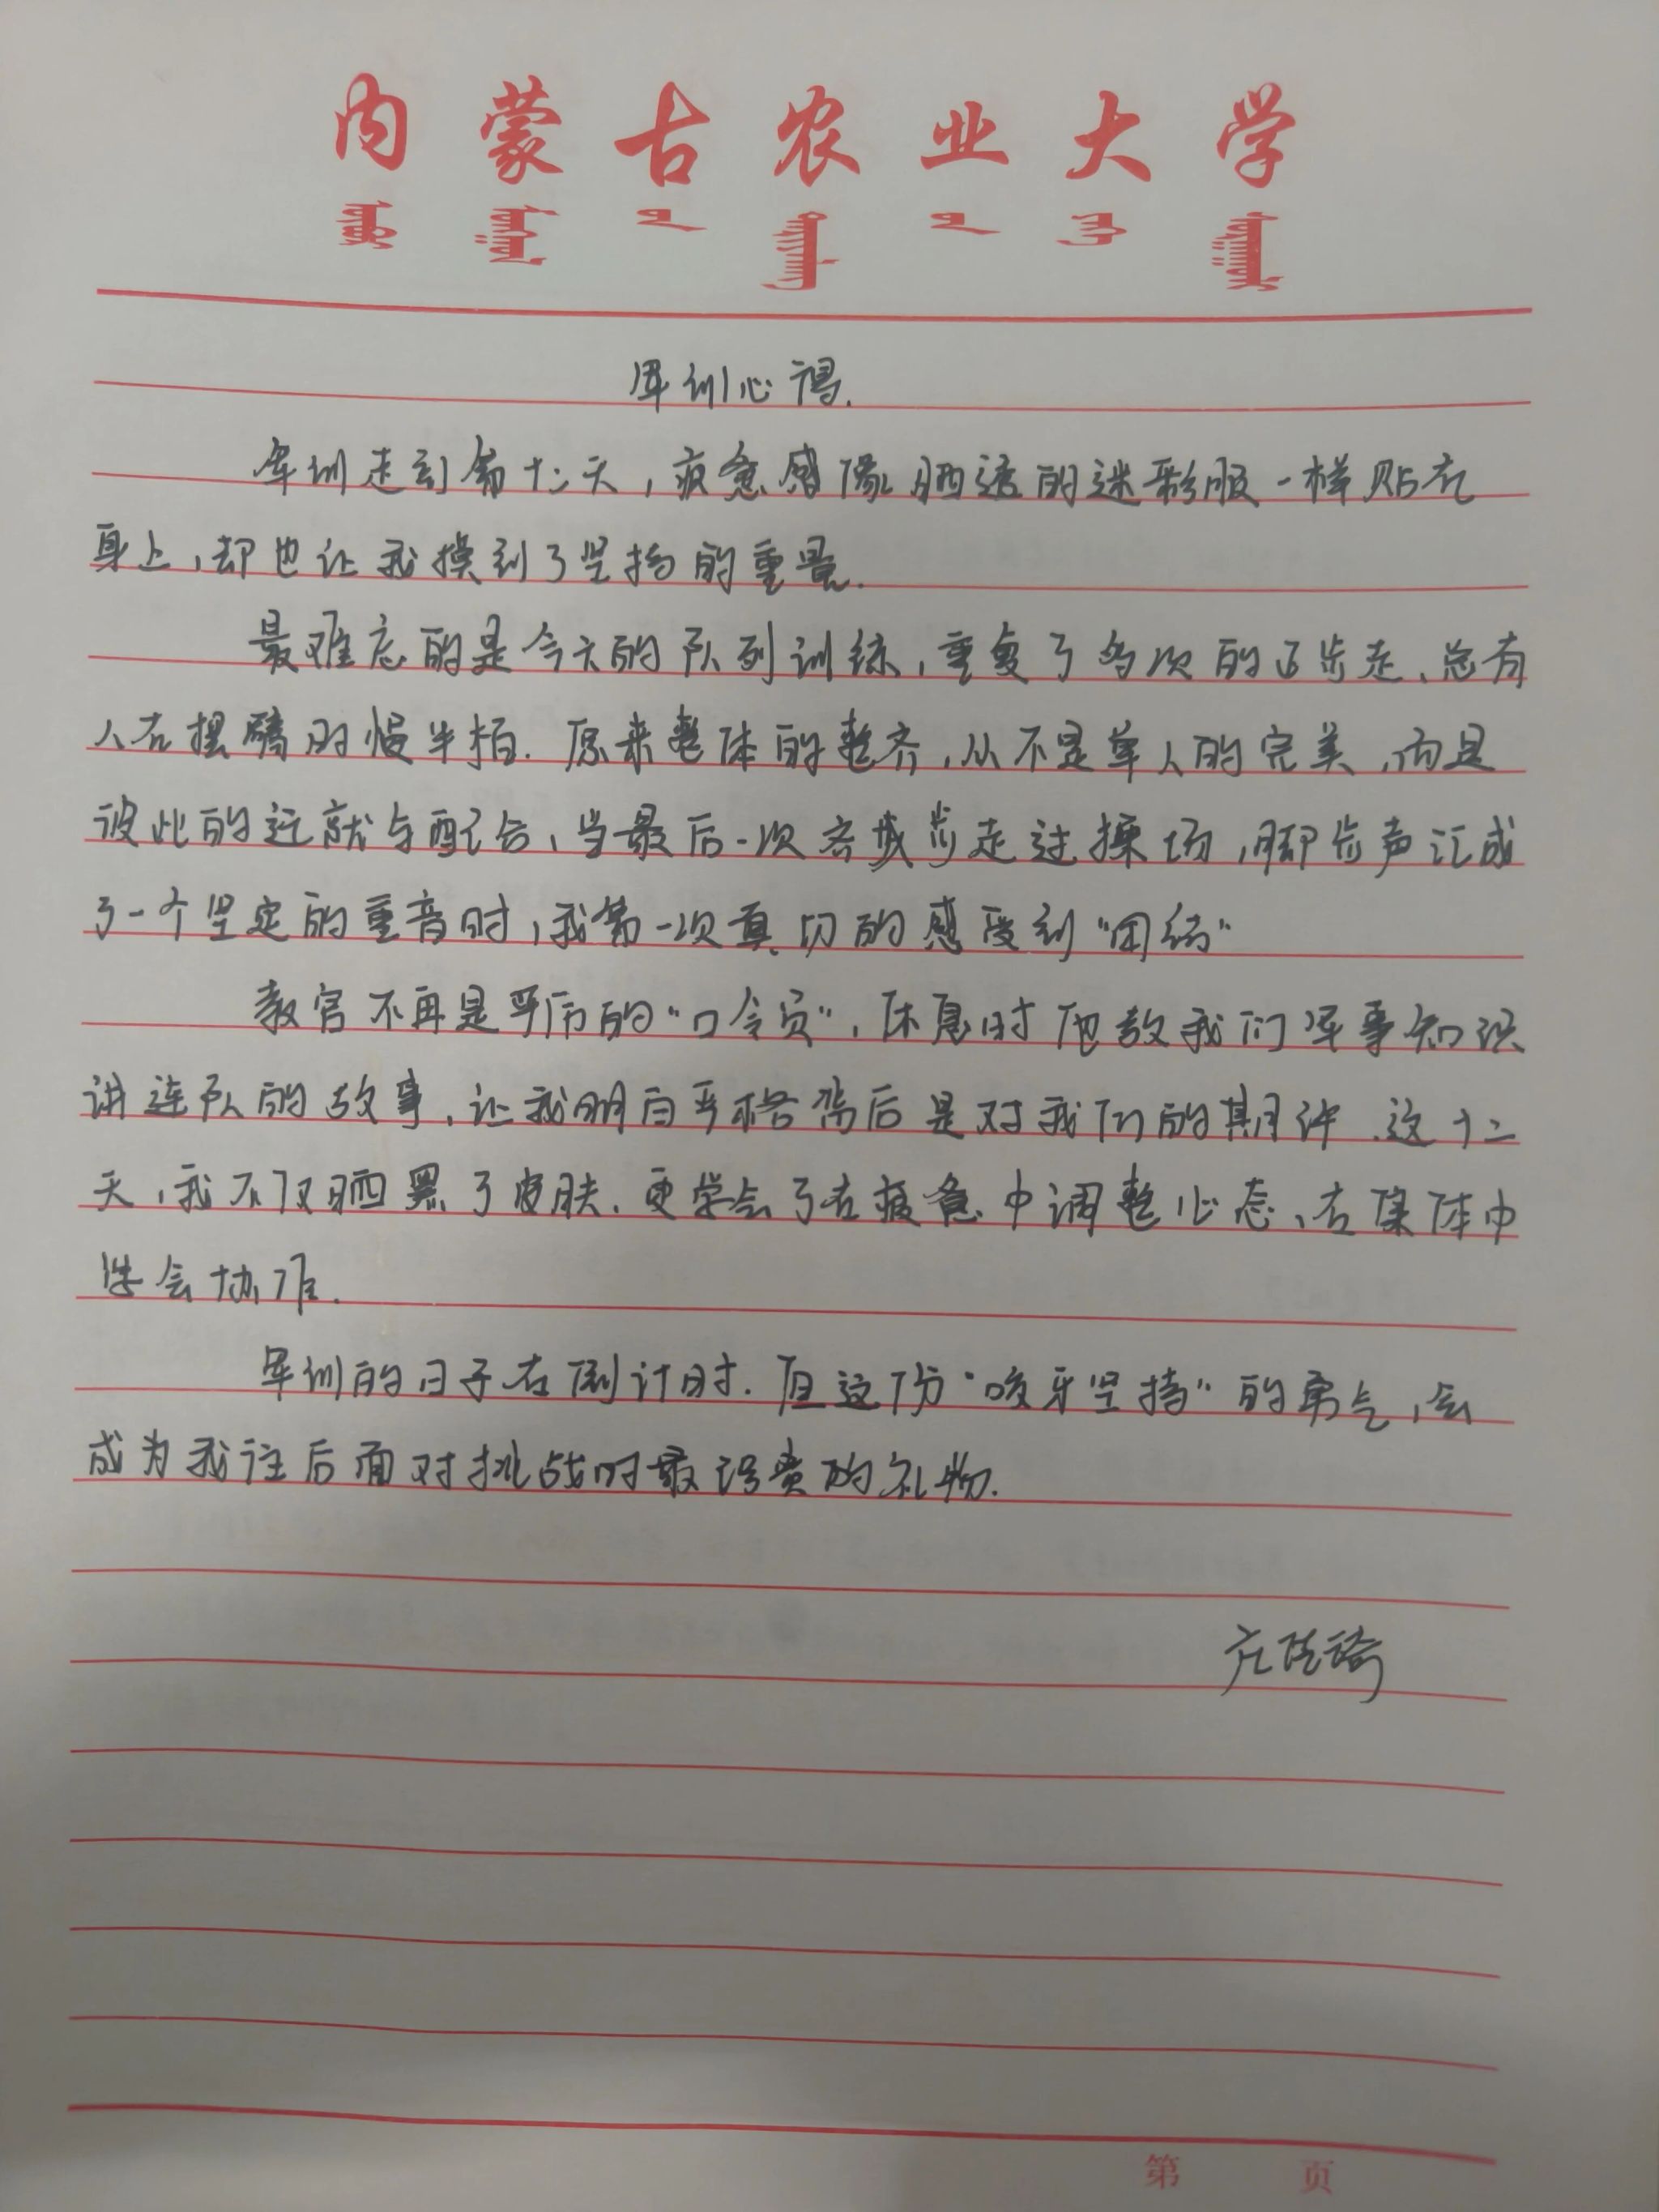 内蒙古农业大学
军训心得.
军训走到第十二天，疲惫感像晒透的迷彩服一样贴在
身上，却也让我摸到了坚持的重量.
最难忘的是今天的队列训练，重复了多次的正步走、总有
人在摆臂时慢半拍.原来整体的整齐，从不是单人的完美，而是
彼此的迁就与配合，当最后一次齐步走过操场，脚步声汇成
了一个坚定的重音时，我第一次真切的感受到“团结”
教官不再是严厉的“口令员”，休息时他教我们军事知识
讲连队的故事，让我明白严格背后是对我们的期许.这十二
天，我不仅晒黑了皮肤.更学会了在疲惫中调整心态，在集体中
学会协作.
军训的日子在倒计时.但这份“咬牙坚持”的勇气，会
成为我往后面对挑战时最珍贵的礼物.
第 页